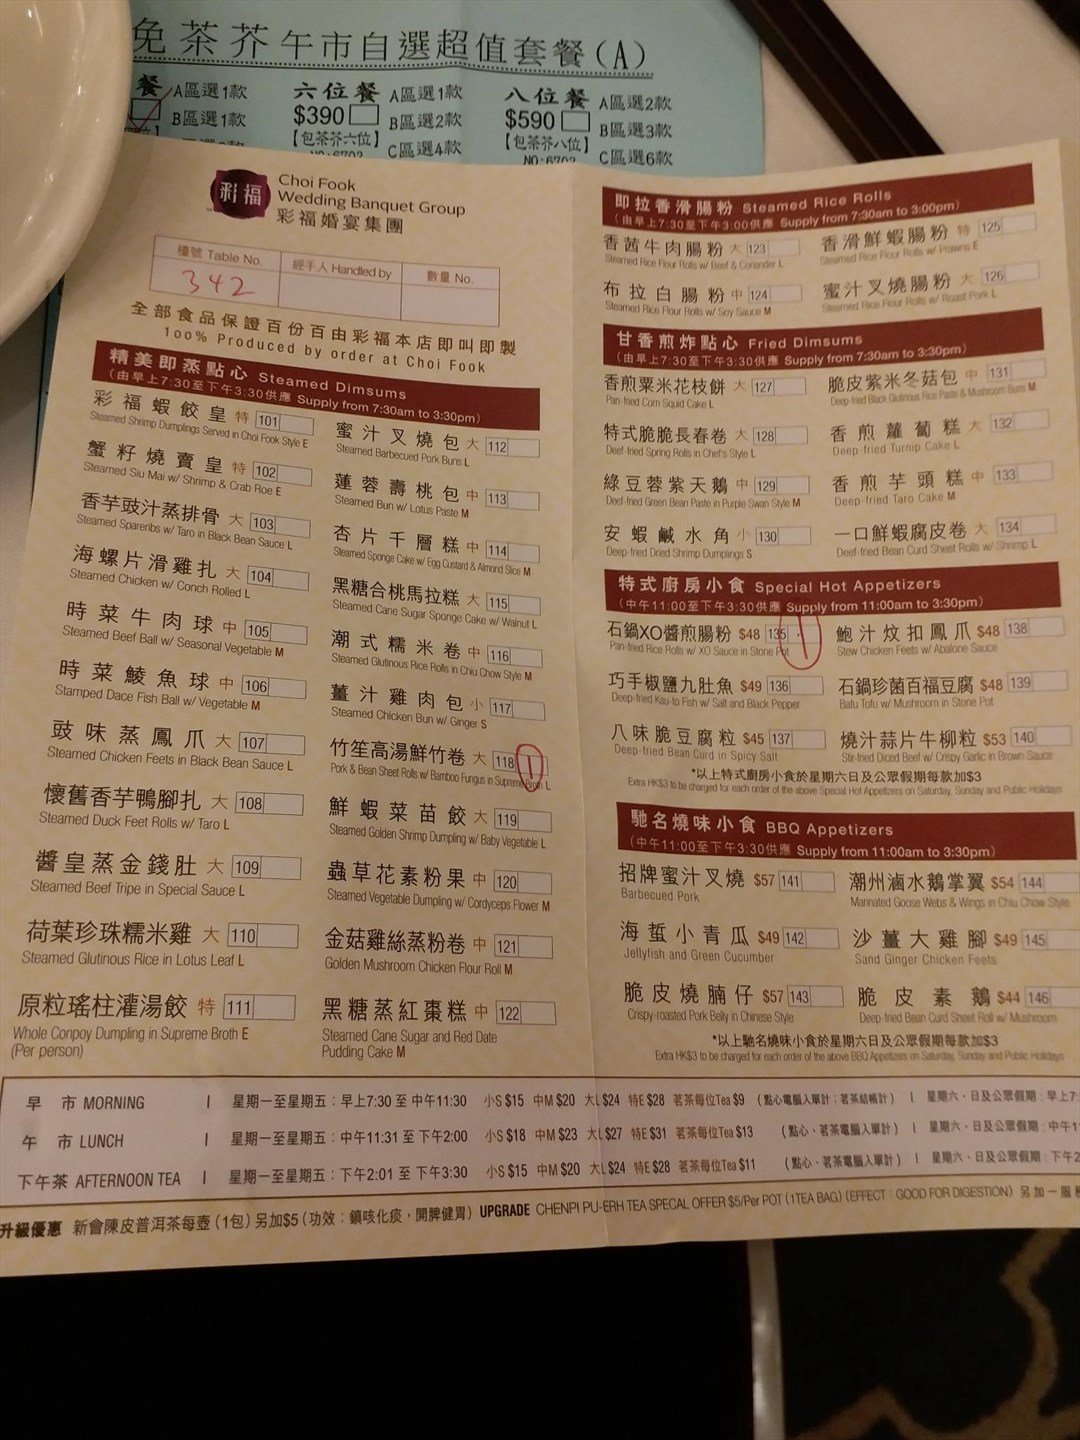 免茶芥午市自選超值套餐(A)
餐 A區選1款
B區選1款
六位餐 A區選1款
$390 B區選2款
【包茶芥六位】 C區選4款
NO:6702
八位餐 A區選2款
$590 B區選3款
【包茶芥八位】 C區選6款
NO:6702
彩福
Choi Fook
Wedding Banquet Group
彩福婚宴集團
檯號 Table No. 經手人 Handled by 數量 No.
342
全部食品保證百份百由彩福本店即叫即製
100% Produced by order at Choi Fook
精美即蒸點心 Steamed Dimsums
(由早上7:30至下午3:30供應 Supply from 7:30am to 3:30pm)
彩福蝦餃皇 特 101
Steamed Shrimp Dumplings Served in Choi Fook Style E
蟹籽燒賣皇 特 102
Steamed Siu Mai w/ Shrimp & Crab Roe E
香芋豉汁蒸排骨 大 103
Steamed Spareribs w/ Taro in Black Bean Sauce L
海螺片滑雞扎 大 104
Steamed Chicken w/ Conch Rolled L
時菜牛肉球 中 105
Steamed Beef Ball w/ Seasonal Vegetable M
時菜鯪魚球 中 106
Stamped Dace Fish Ball w/ Vegetable M
豉味蒸鳳爪 大 107
Steamed Chicken Feets in Black Bean Sauce L
懷舊香芋鴨腳扎 大 108
Steamed Duck Feet Rolls w/ Taro L
醬皇蒸金錢肚 大 109
Steamed Beef Tripe in Special Sauce L
荷葉珍珠糯米雞 大 110
Steamed Glutinous Rice in Lotus Leaf L
原粒瑤柱灌湯餃 特 111
Whole Conpoy Dumpling in Supreme Broth E
(Per person)
蜜汁叉燒包 大 112
Steamed Barbecued Pork Buns L
蓮蓉壽桃包 中 113
Steamed Bun w/ Lotus Paste M
杏片千層糕 中 114
Steamed Sponge Cake w/ Egg Custard & Almond Slice M
黑糖合桃馬拉糕 大 115
Steamed Cane Sugar Sponge Cake w/ Walnut L
潮式糯米卷 中 116
Steamed Glutinous Rice Rolls in Chiu Chow Style M
薑汁雞肉包 小 117
Steamed Chicken Bun w/ Ginger S
竹笙高湯鮮竹卷 大 118 1
Pork & Bean Sheet Rolls w/ Bamboo Fungus in Supreme Broth L
鮮蝦菜苗餃 大 119
Steamed Golden Shrimp Dumpling w/ Baby Vegetable L
蟲草花素粉果 中 120
Steamed Vegetable Dumpling w/ Cordyceps Flower M
金菇雞絲蒸粉卷 中 121
Golden Mushroom Chicken Flour Roll M
黑糖蒸紅棗糕 中 122
Steamed Cane Sugar and Red Date
Pudding Cake M
即拉香滑腸粉 Steamed Rice Rolls
(由早上7:30至下午3:00供應 Supply from 7:30am to 3:00pm)
香茜牛肉腸粉 大 123
Steamed Rice Flour Rolls w/ Beef & Coriander L
布拉白腸粉 中 124
Steamed Rice Flour Rolls w/ Soy Sauce M
香滑鮮蝦腸粉 特 125
Steamed Rice Flour Rolls w/ Prawns E
蜜汁叉燒腸粉 大 126
Steamed Rice Flour Rolls w/ Roast Pork L
甘香煎炸點心 Fried Dimsums
(由早上7:30至下午3:30供應 Supply from 7:30am to 3:30pm)
香煎粟米花枝餅 大 127
Pan-fried Corn Squid Cake L
特式脆脆長春卷 大 128
Deef-fried Spring Rolls in Chef's Style L
綠豆蓉紫天鵝 中 129
Deef-fried Green Bean Paste in Purple Swan Style M
安蝦鹹水角 小 130
Deep-fried Dried Shrimp Dumplings S
脆皮紫米冬菇包 中 131
Deep-fried Black Glutinous Rice Paste & Mushroom Buns M
香煎蘿蔔糕 大 132
Deep-fried Turnip Cake L
香煎芋頭糕 中 133
Deep-fried Taro Cake M
一口鮮蝦腐皮卷 大 134
Deef-fried Bean Curd Sheet Rolls w/ Shrimp L
特式廚房小食 Special Hot Appetizers
(中午11:00至下午3:30供應 Supply from 11:00am to 3:30pm)
石鍋XO醬煎腸粉 $48 135 1
Pan-fried Rice Rolls w/ XO Sauce in Stone Pot
巧手椒鹽九肚魚 $49 136
Deep-fried Kau-to Fish w/ Salt and Black Pepper
八味脆豆腐粒 $45 137
Deep-fried Bean Curd in Spicy Salt
鮑汁炆扣鳳爪 $48 138
Stew Chicken Feets w/ Abalone Sauce
石鍋珍菌百福豆腐 $48 139
Bafu Tofu w/ Mushroom in Stone Pot
燒汁蒜片牛柳粒 $53 140
Stir-fried Diced Beef w/ Crispy Garlic in Brown Sauce
*以上特式廚房小食於星期六日及公眾假期每款加$3
Extra HK$3 to be charged for each order of the above Special Hot Appetizers on Saturday, Sunday and Public Holidays
馳名燒味小食 BBQ Appetizers
(中午11:00至下午3:30供應 Supply from 11:00am to 3:30pm)
招牌蜜汁叉燒 $57 141
Barbecued Pork
海蜇小青瓜 $49 142
Jellyfish and Green Cucumber
脆皮燒腩仔 $57 143
Crispy-roasted Pork Belly in Chinese Style
潮州滷水鵝掌翼 $54 144
Marinated Goose Webs & Wings in Chiu Chow Style
沙薑大雞腳 $49 145
Sand Ginger Chicken Feets
脆皮素鵝 $44 146
Deep-fried Bean Curd Sheet Roll w/ Mushroom
*以上馳名燒味小食於星期六日及公眾假期每款加$3
Extra HK$3 to be charged for each order of the above BBQ Appetizers on Saturday, Sunday and Public Holidays
早市 MORNING | 星期一至星期五：早上7:30 至 中午11:30 小S $15 中M $20 大L $24 特E $28 茗茶每位Tea $9 (點心電腦入單計；茗茶結帳計) | 星期六、日及公眾假期：早上7:
午市 LUNCH | 星期一至星期五：中午11:31 至 下午2:00 小S $18 中M $23 大L $27 特E $31 茗茶每位Tea $13 (點心、茗茶電腦入單計) | 星期六、日及公眾假期：中午1
下午茶 AFTERNOON TEA | 星期一至星期五：下午2:01 至 下午3:30 小S $15 中M $20 大L $24 特E $28 茗茶每位Tea $11 (點心、茗茶電腦入單計) | 星期六、日及公眾假期：下午2
升級優惠 新會陳皮普洱茶每壺 (1包) 另加$5 (功效：鎮咳化痰，開脾健胃) UPGRADE CHENPI PU-ERH TEA SPECIAL OFFER $5/Per POT (1TEA BAG) (EFFECT：GOOD FOR DIGESTION) 另加一服